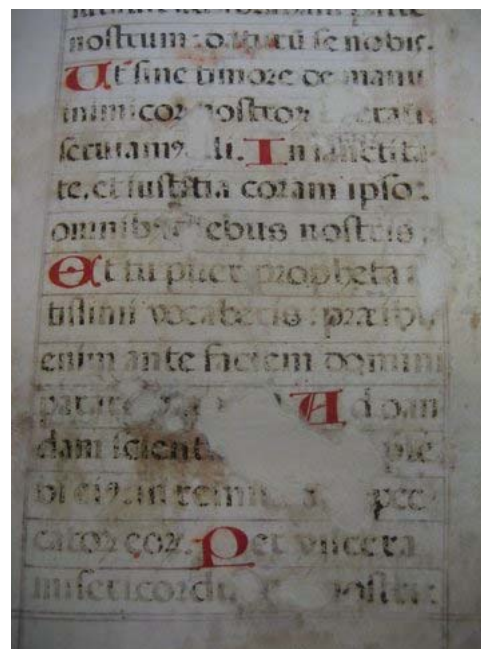 nostrum: daturū se nobis.
Ut sine timore de manu
inimicoꝝ nostroꝝ
seruiamꝰ illi. In sanctita
te, et iustitia coram ipso:
omnibus diebus nostris.
Et tu puer propheta
tissimi vocaberis: præibis
enim ante faciem domini
parare Ad dan
dam scient ple
bi eiꝰ: in remi pec
catoꝝ eoꝝ. Per viscera
misericordi nostri